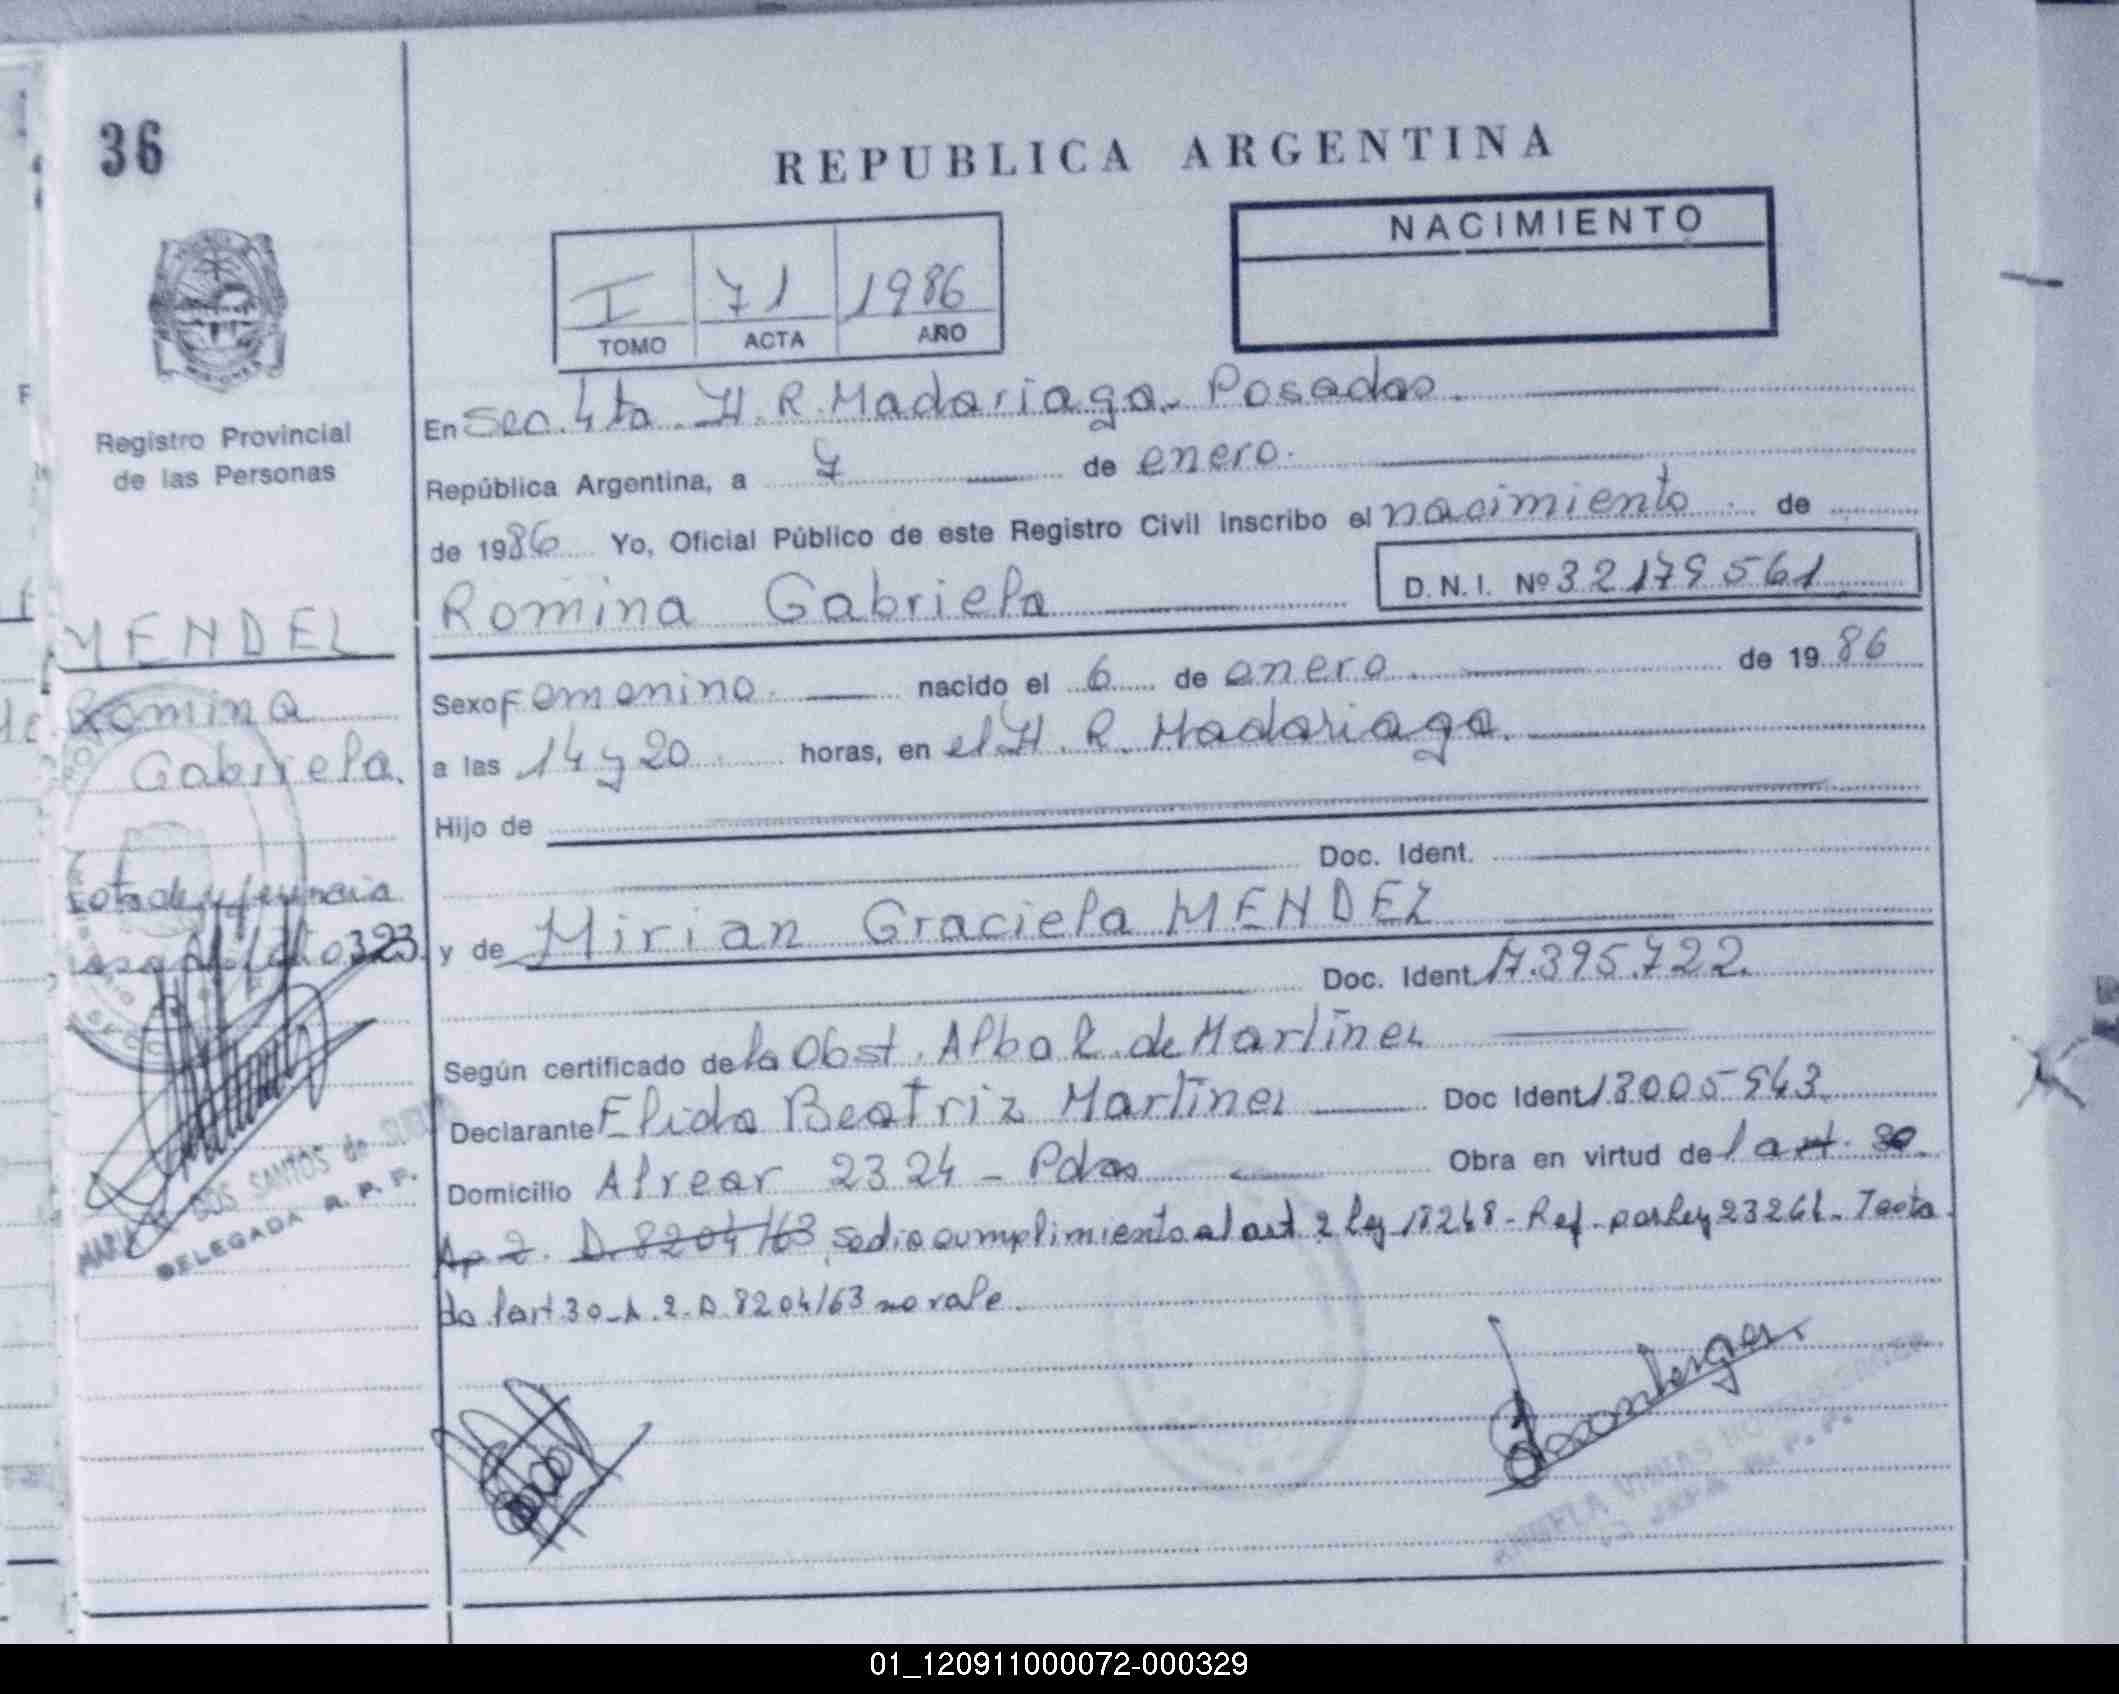 36
REPUBLICA ARGENTINA
NACIMIENTO
I 71 1986
TOMO ACTA AÑO
Registro Provincial
de las Personas
En Sec. 4ta. H. R. Madariaga - Posadas.
República Argentina, a 7 de enero.
de 1986 Yo, Oficial Público de este Registro Civil inscribo el nacimiento de
Romina Gabriela D.N.I. Nº 32179561
MENDEL
Romina
Gabriela.
Sexo Femenino. nacido el 6 de enero. de 1986
a las 14 y 20 horas, en el H. R. Madariaga.
Hijo de
Doc. Ident.
y de Mirian Graciela MENDEL
Doc. Ident. 17.395.722.
323
Según certificado de la Obst. Alba R. de Martínez
Declarante Elida Beatriz Martínez Doc Ident 13005943
Domicilio Alvear 2324 - Pdas Obra en virtud de l art. 30
Ap 2. D. 8204/63 se dio cumplimiento al art 2 ley 18248 - Ref. por Ley 23264 - Testa
do l'art 30 - A. 2. D. 8204/63 no vale.
DOS SANTOS de
DELEGADA R. P. P.
01_120911000072-000329